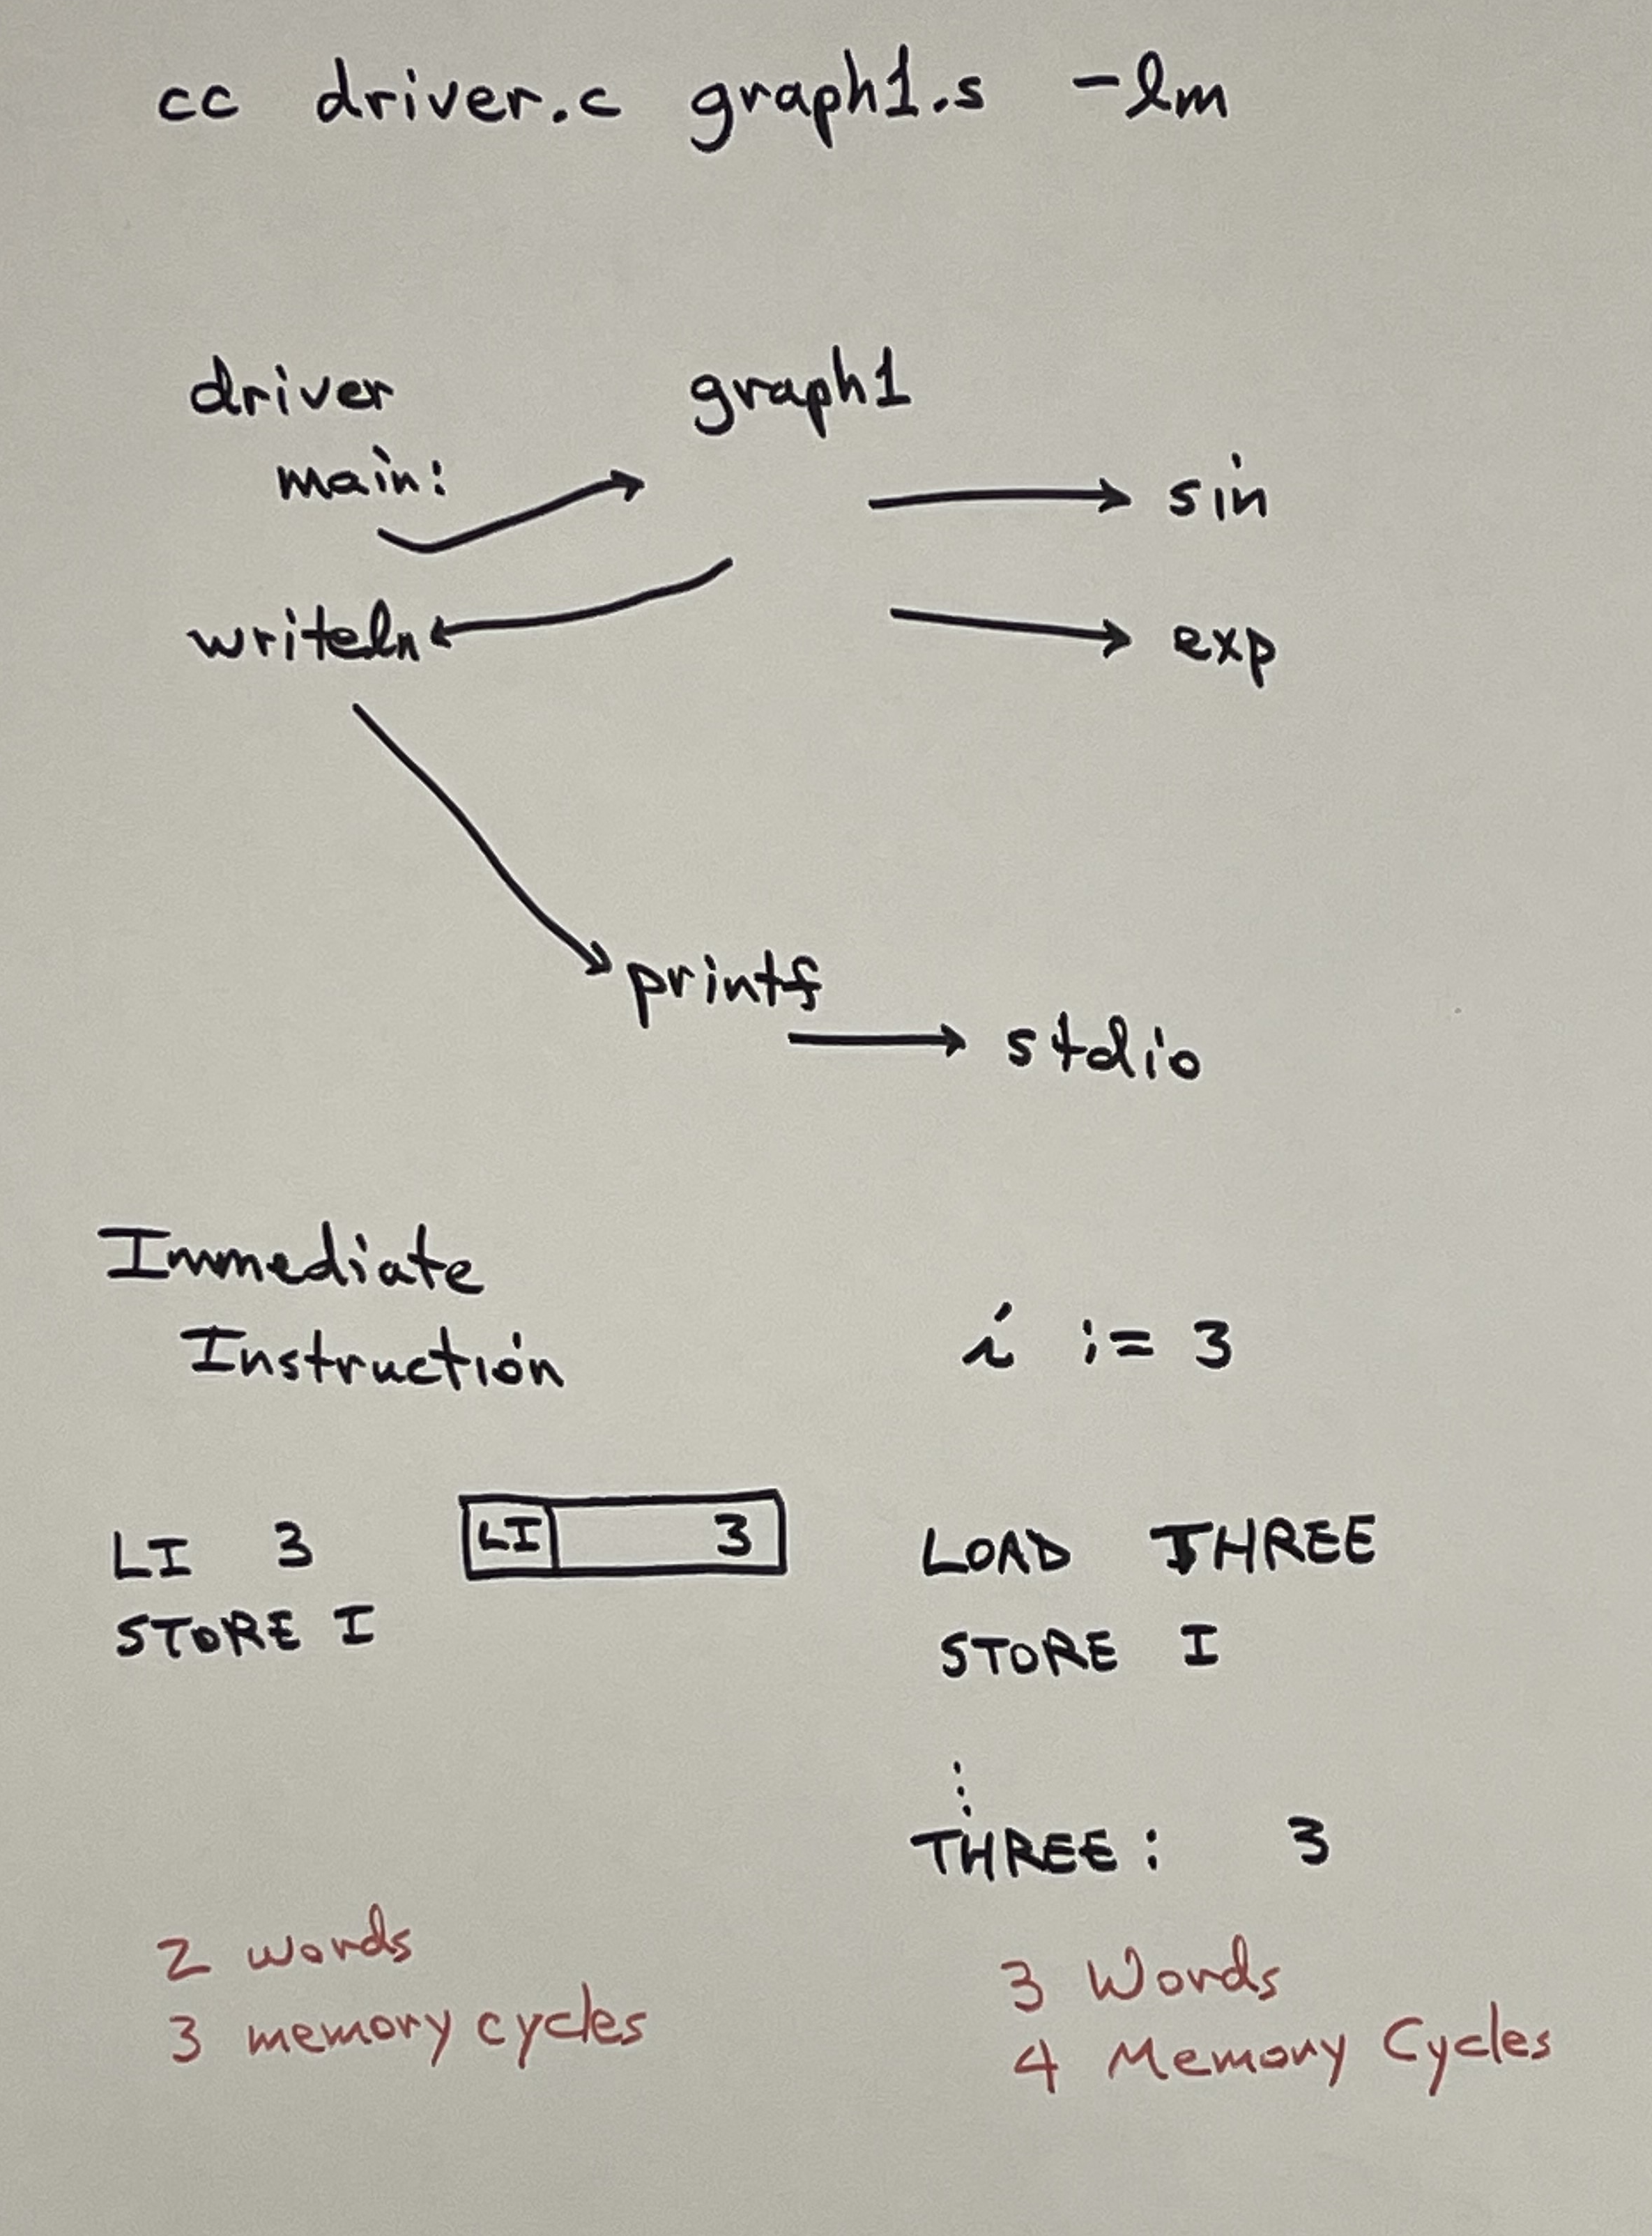 cc driver.c graph1.s -lm
driver graph1
main:
sin
writeln
exp
printf
stdio
Immediate
Instruction
i := 3
LI 3
LI 3
STORE I
LOAD THREE
STORE I
⋮
THREE: 3
2 words
3 memory cycles
3 Words
4 Memory Cycles